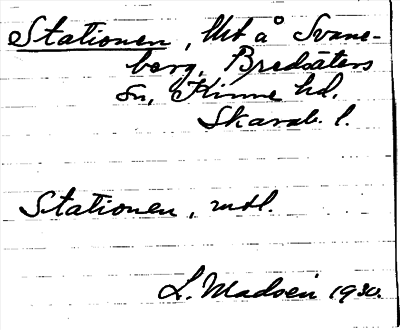 Stationen, Utb å Svane-
berg, Bredsäters
sn, Kinne hd.
Skarab. l.
Stationen, mtl.
L. Madsén 1930.